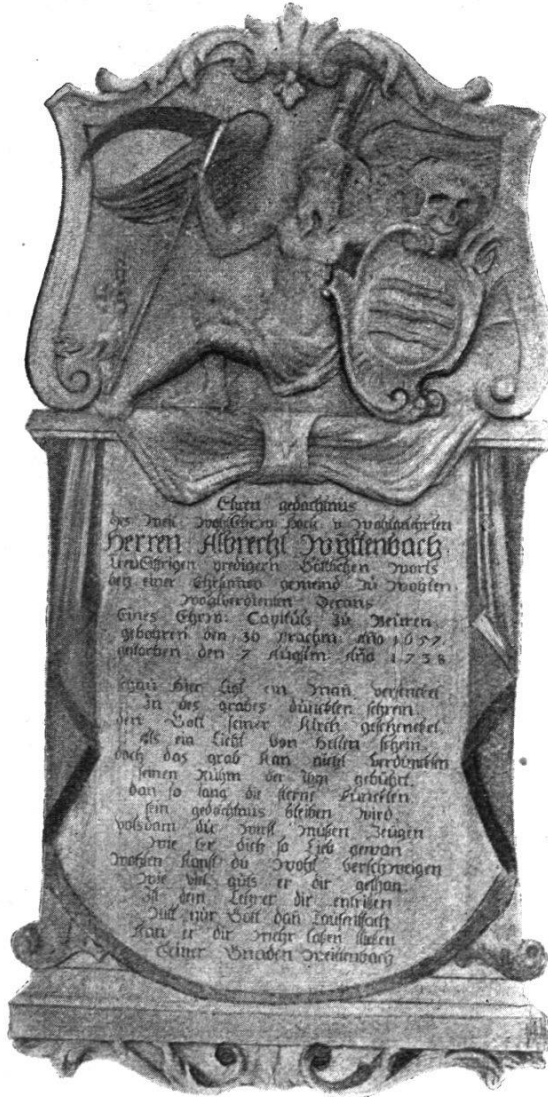 Ehren gedächtnus
des Weil. WohlEhrw. Hoch u. Wohlgelehrten
Herren Albrecht Wyttenbach
predigern Göttlichen Worts
bey einer Ehrsamen gemeind zu Wohlen
Wohlverdienten Decans
Eines Ehrw. Capituls zu Beüren
gebohren den 30 Brachm. Año 1657
gestorben den 7 Augstm. Año 1738
Hier Ligt ein Man
in des grabes duncklen schrein
den Gott seiner Kirch geschencket
als ein Liecht von hellem schein
doch das grab kan nicht verdunclen
seinen Ruhm der ihm gebührt
dan so lang die sterne funcklen
sein gedächtnus bleiben wird
du wirst müßen Zeügen
wie Er dich so Lieb gewan
Wohlen kanst du Wohl verschweigen
wie viel guts er dir gethan
Ist dem Lehrer dir entrißen
nur Gott dan
kan er dir mehr laßen fließen
seiner Gnaden